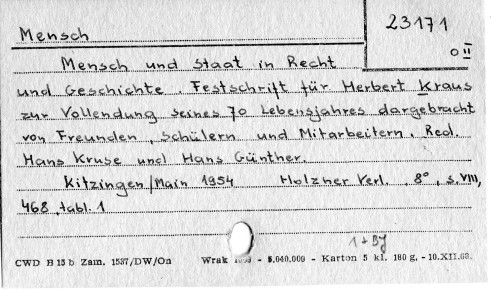 Mensch
23171
O II
Mensch und Staat in Recht
und Geschichte. Festschrift für Herbert Kraus
zur Vollendung seines 70 Lebensjahres dargebracht
von Freunden, Schülern und Mitarbeitern. Red.
Hans Kruse und Hans Günther.
Kitzingen/Main 1954 Holzner Verl., 8°, s. VIII,
468, tabl. 1
1+BJ
CWD B 15 b Zam. 1537/DW/On Wrak - 5.040.000 - Karton 5 kl. 180 g. - 10.XII.62.